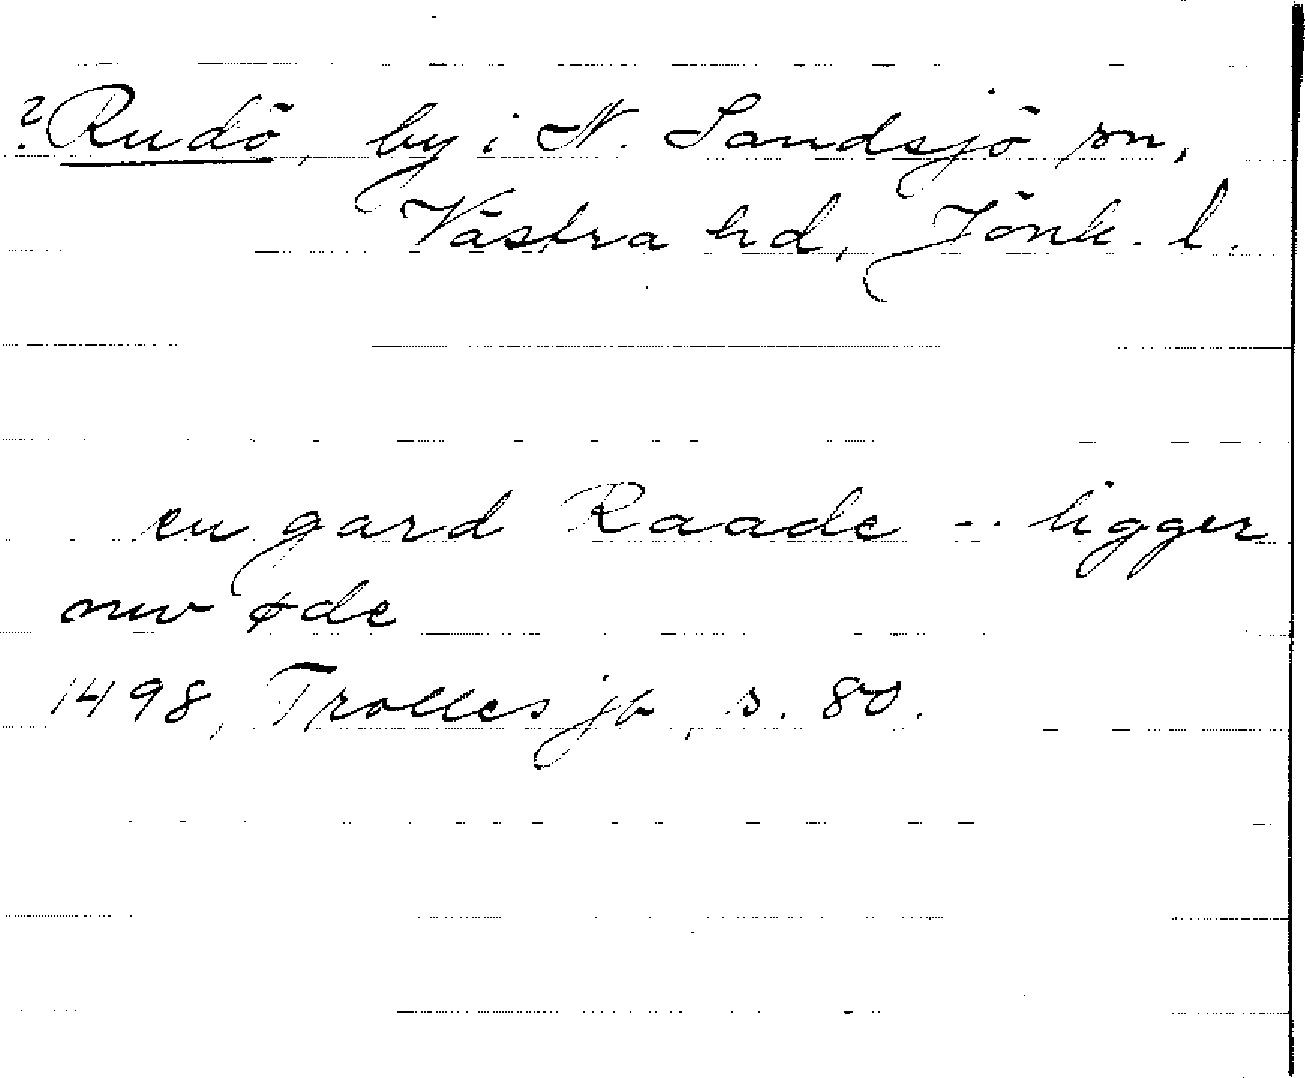 ? Rudö, by i N. Sandsjö sn,
Västra hd, Jönk. l.
en gard Raade -- ligger
nw øde
1498, Trolles jb, s. 80.